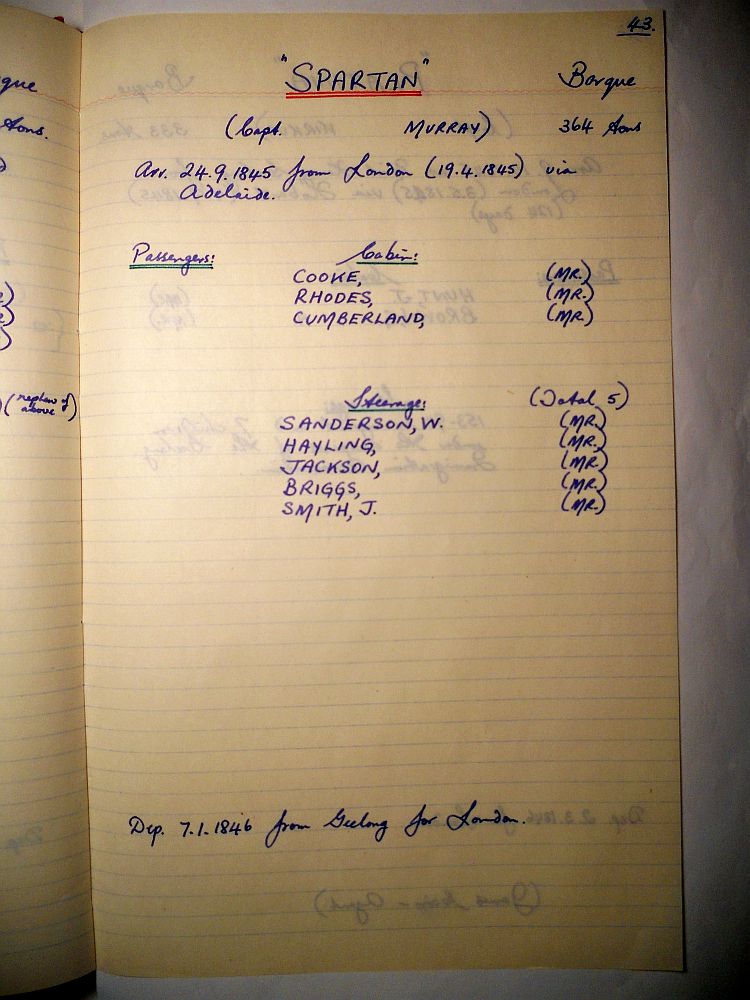 43.
"SPARTAN" Barque
(Capt. MURRAY) 364 tons
Arr. 24.9.1845 from London (19.4.1845) via
Adelaide.
Passengers: Cabin:
COOKE, (MR.)
RHODES, (MR.)
CUMBERLAND, (MR.)
Steerage: (Total 5)
SANDERSON, W. (MR.)
HAYLING, (MR.)
JACKSON, (MR.)
BRIGGS, (MR.)
SMITH, J. (MR.)
Dep. 7.1.1846 from Geelong for London.
que
tons.
(nephew of
above)